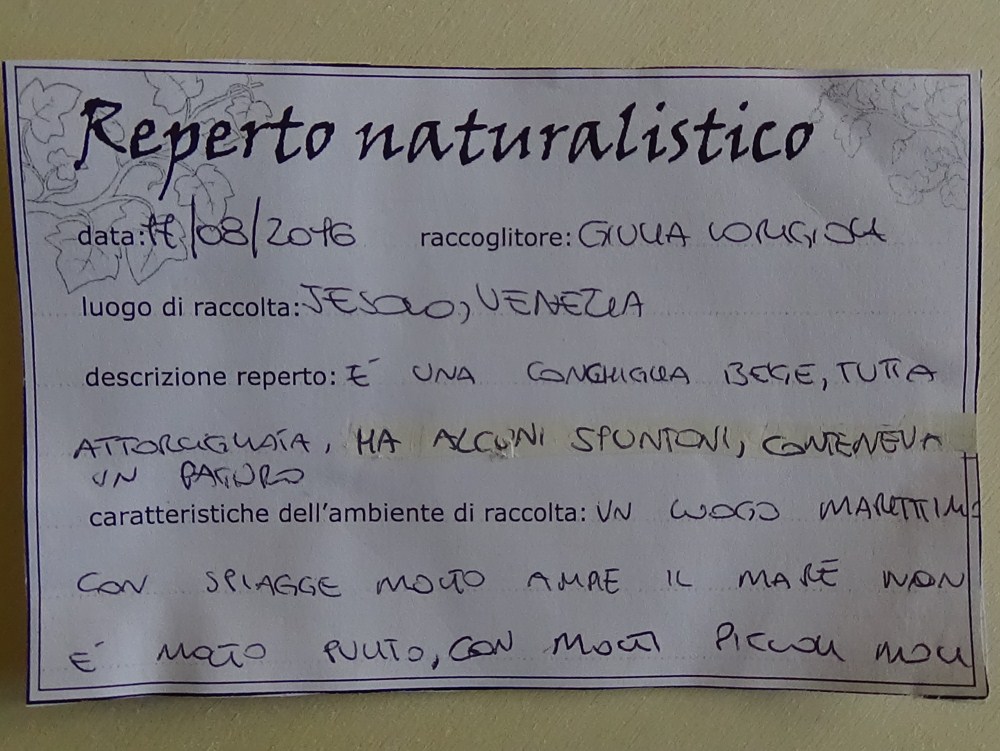 Reperto naturalistico
data: 17/08/2016 raccoglitore: GIULIA
luogo di raccolta: JESOLO, VENEZIA
descrizione reperto: E' UNA CONCHIGLIA BEGE, TUTTA
ATTORCIGLIATA, HA ALCUNI SPUNTONI, CONTENEVA
UN PAGURO
caratteristiche dell'ambiente di raccolta: UN LUOGO MARITTIMO
CON SPIAGGE MOLTO AMPIE IL MARE NON
E' MOLTO PULITO, CON MOLTI PICCOLI MOLI